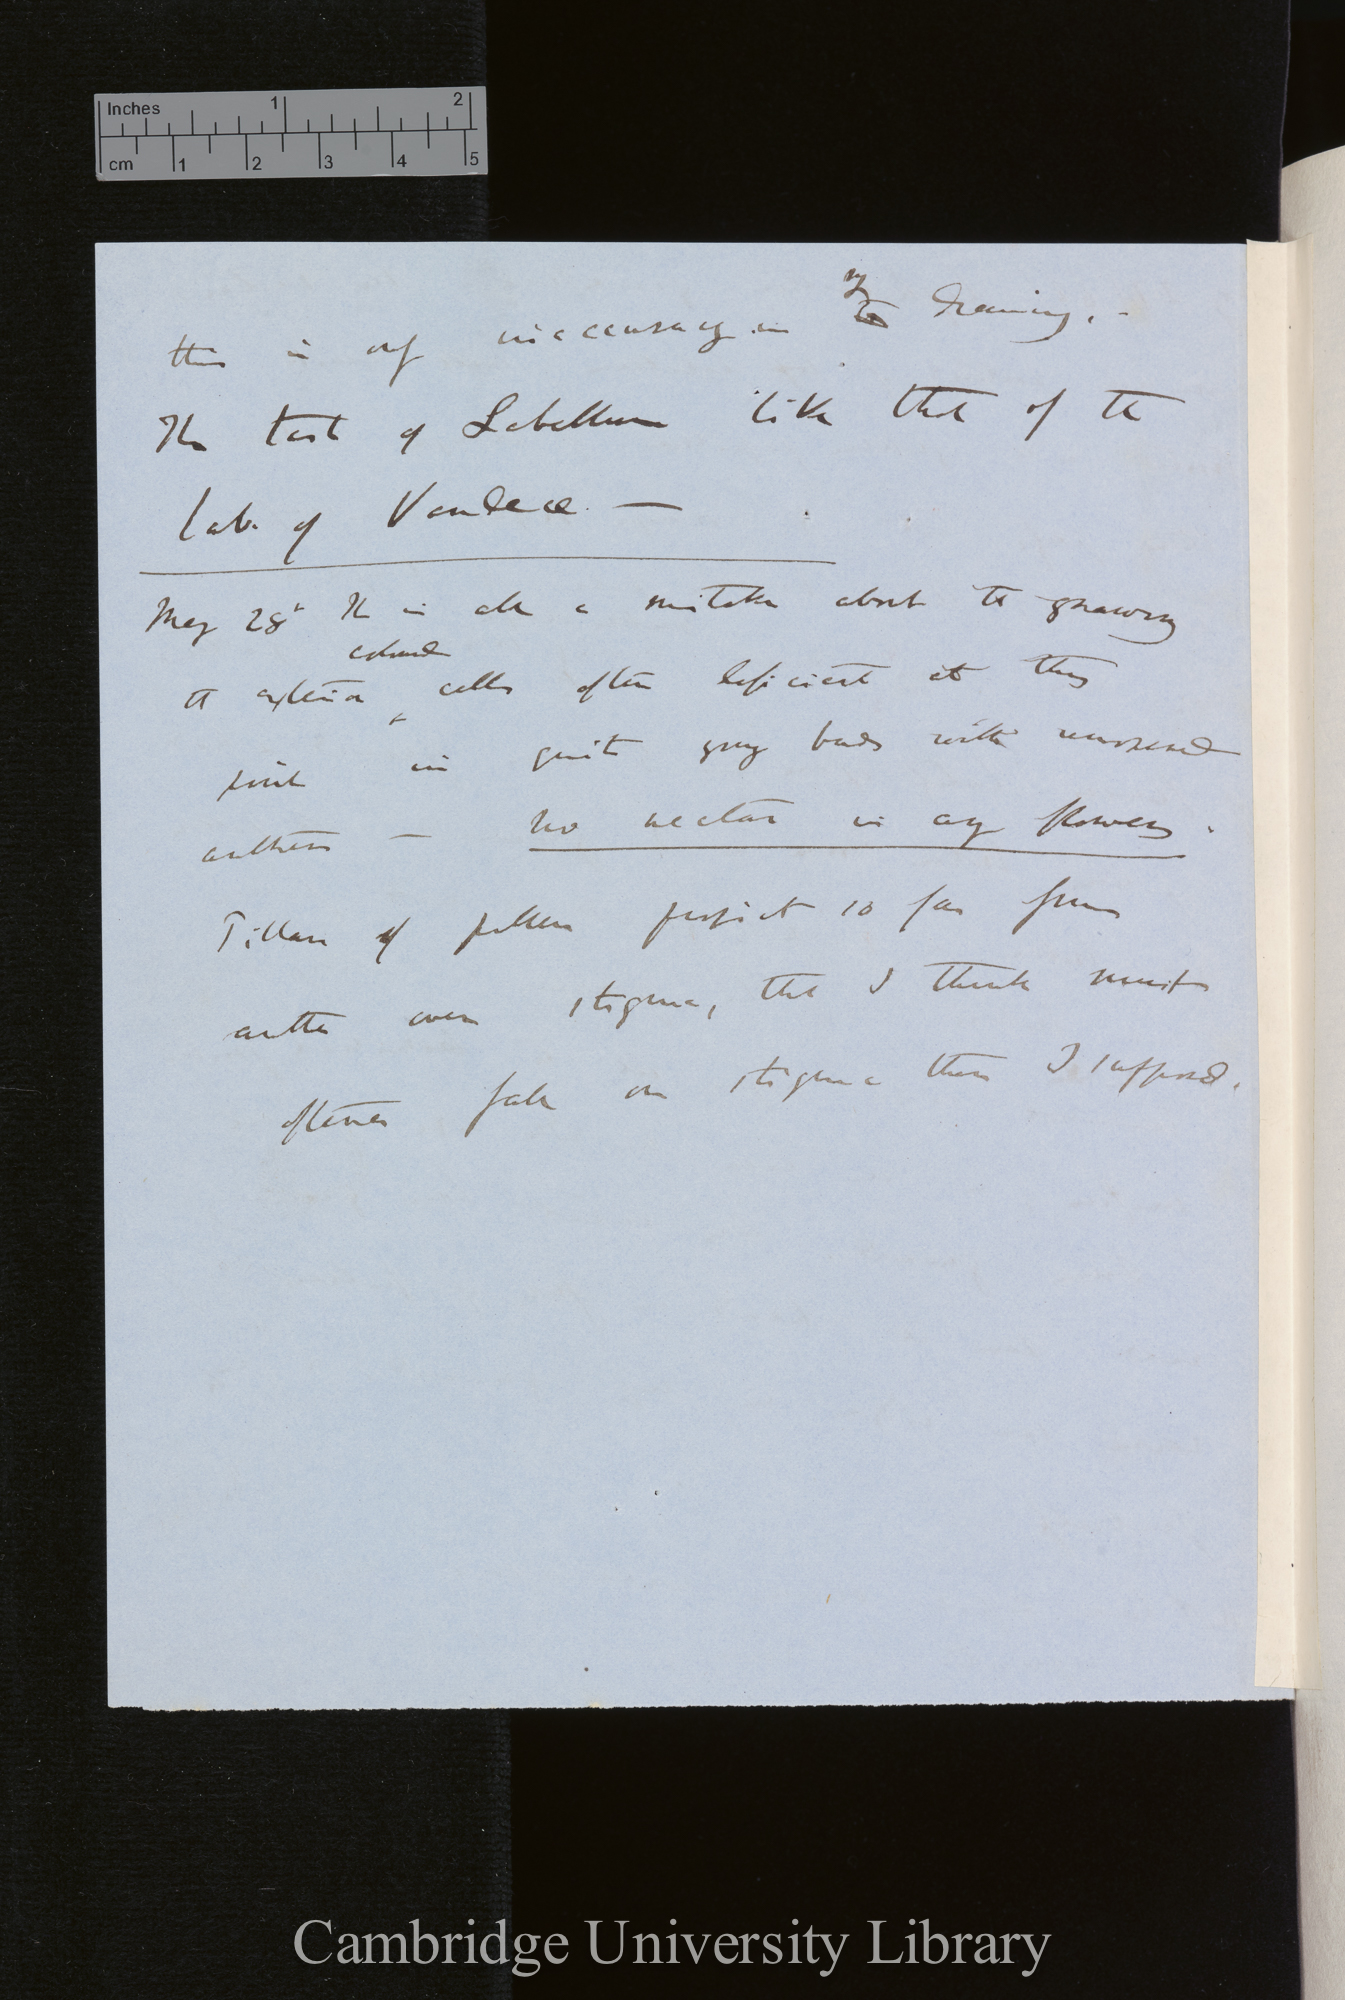 Inches 1 2
cm 1 2 3 4 5
this is only inaccuracy in my drawing. —
The taste of Labellum like that of the
Lab. of Vandeae —
May 28th It is all a mistake about the gnawing
coloured
the exterior cells often deficient at this
point in quite young buds with unopened
anthers — No nectar in any flowers.
Pillars of pollen project so far from
anther over stigma, that I think must
oftener fall on stigma than I supposed.
Cambridge University Library